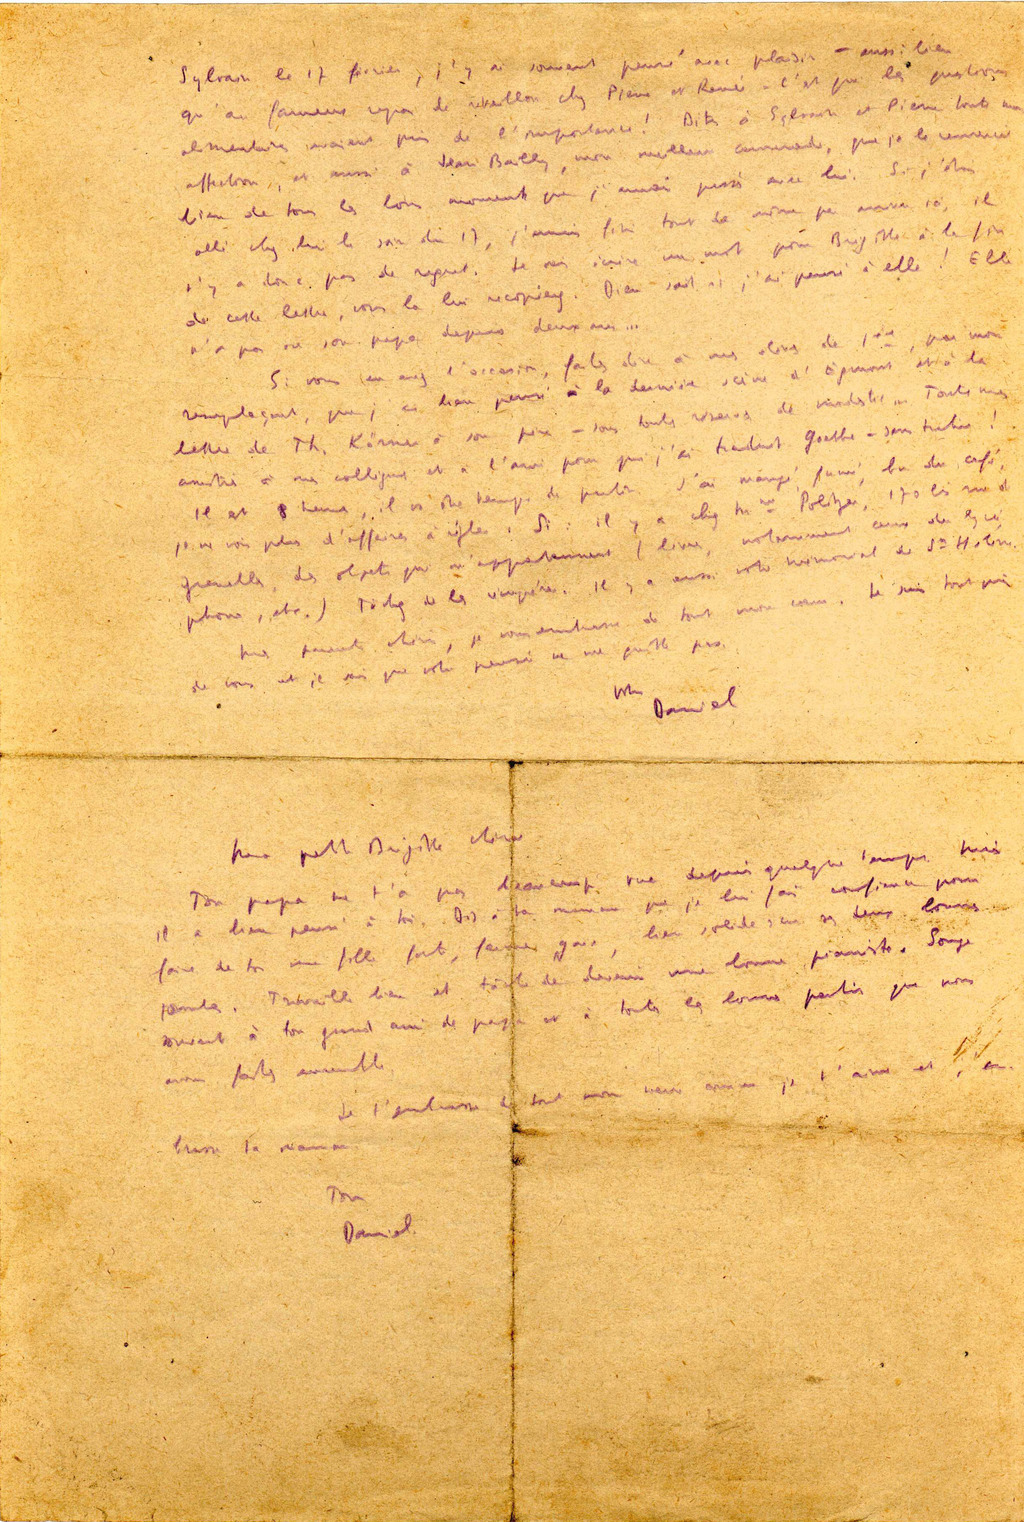 Sylvain le 17 février, j'y ai souvent pensé avec plaisir – aussi bien
qu'au fameux repas de réveillon chez Pierre et Renée – C'est que les questions
alimentaires avaient pris de l'importance ! Dites à Sylvain et Pierre toute mon
affection, et aussi à Jean Bailly, mon meilleur camarade, que je le remercie
bien de tous les bons moments que j'aurais passés avec lui. Si j'étais
allé chez lui le soir du 17, j'aurais fini tout de même par arriver ici, il
n'y a donc pas de regret. Je vais écrire un mot pour Brigitte à la fin
de cette lettre, vous la lui recopierez. Dieu sait si j'ai pensé à elle ! Elle
n'a pas vu son papa depuis deux ans...
Si vous en avez l'occasion, faites dire à mes élèves de 1ère, par mon
remplaçant, que j'ai bien pensé à la dernière scène d'Egmont et à la
lettre de Th. Körner à son père – sous toute réserve de modestie... Toutes mes
amitiés à mes collègues et à l'ami pour qui j'ai traduit Goethe – sans trahir !
Il est 8 heures, il va être temps de partir. J'ai mangé, fumé, bu du café,
je ne vois plus d'affaires à régler. Si : il y a chez Mme Politzer, 170 bis rue de
Grenelle, des objets qui m'appartiennent (livres, notamment ceux du lycée,
phono, etc.) Tâchez de les récupérer. Il y a aussi votre mémorial de Ste Hélène.
Mes parents chéris, je vous embrasse de tout mon cœur. Je suis tout près
de vous et je sais que votre pensée ne me quitte pas.
Votre
Daniel
Ma petite Brigitte chérie
Ton papa ne t'a pas beaucoup vue depuis quelque temps mais
il a bien pensé à toi. Dis à ta maman que je lui fais confiance pour
faire de toi une fille forte, gaie, bien solide sur ses deux bonnes
jambes. Travaille bien et tâche de devenir une bonne pianiste. Songe
souvent à ton grand ami de papa et à toutes les bonnes parties que nous
avons faites ensemble.
Je t'embrasse de tout mon cœur comme je t'aime et j'em-
brasse ta maman
Ton
Daniel